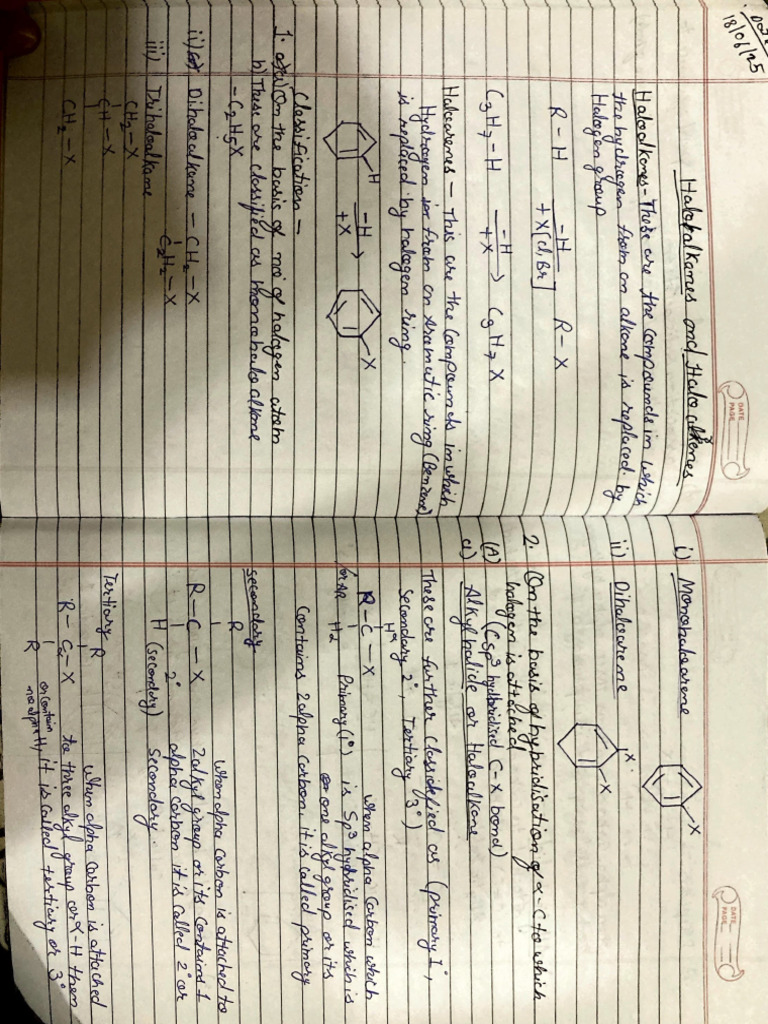 Date
18/06/25
DATE
PAGE
Haloalkanes and Haloalkenes
Haloalkanes - These are the compounds in which
the hydrogen from an alkane is replaced by
Halogen group
R - H  -H  R - X
+ X [Cl, Br]
C3H7 - H  -H → C3H7X
+ X
Haloarenes - This are the compounds in which
Hydrogen is from an Aramatic ring (Benzene)
is replaced by halogen ring.
H  -H →  X
+X
Classification -
1. On the basis of no of halogen atom
These are classified as monohaloalkane
- C2H5X
ii) Dihaloalkane - CH2 - X
C2H2 - X
iii) Trihaloalkane
CH2 - X
CH - X
CH2 - X
DATE
PAGE
i) Monohaloarene
X
ii) Dihaloarene
X
X
2. On the basis of hybridisation of α - C to which
halogen is attached
(A) (Csp3 hybridised C - X bond)
a) Alkyl halide or Haloalkane
These are further Classidified as (primary 1°,
secondary 2°, Tertiary 3°)
Hα
R - C - X  when alpha carbon which
H2  Primary (1°) is Sp3 hybridised which is
or one alkyl group or its
contains 2 alpha carbon, it is called primary
secondary
R
When alpha carbon is attached to
R - C - X  2 alkyl group or its contains 1
2° alpha carbon it is called 2° or
H (secondary) secondary.
Tertiary
R  When alpha carbon is attached
R - Cα - X  to three alkyl group or α - H then
R  or contain no alpha H, it is called tertiary or 3°